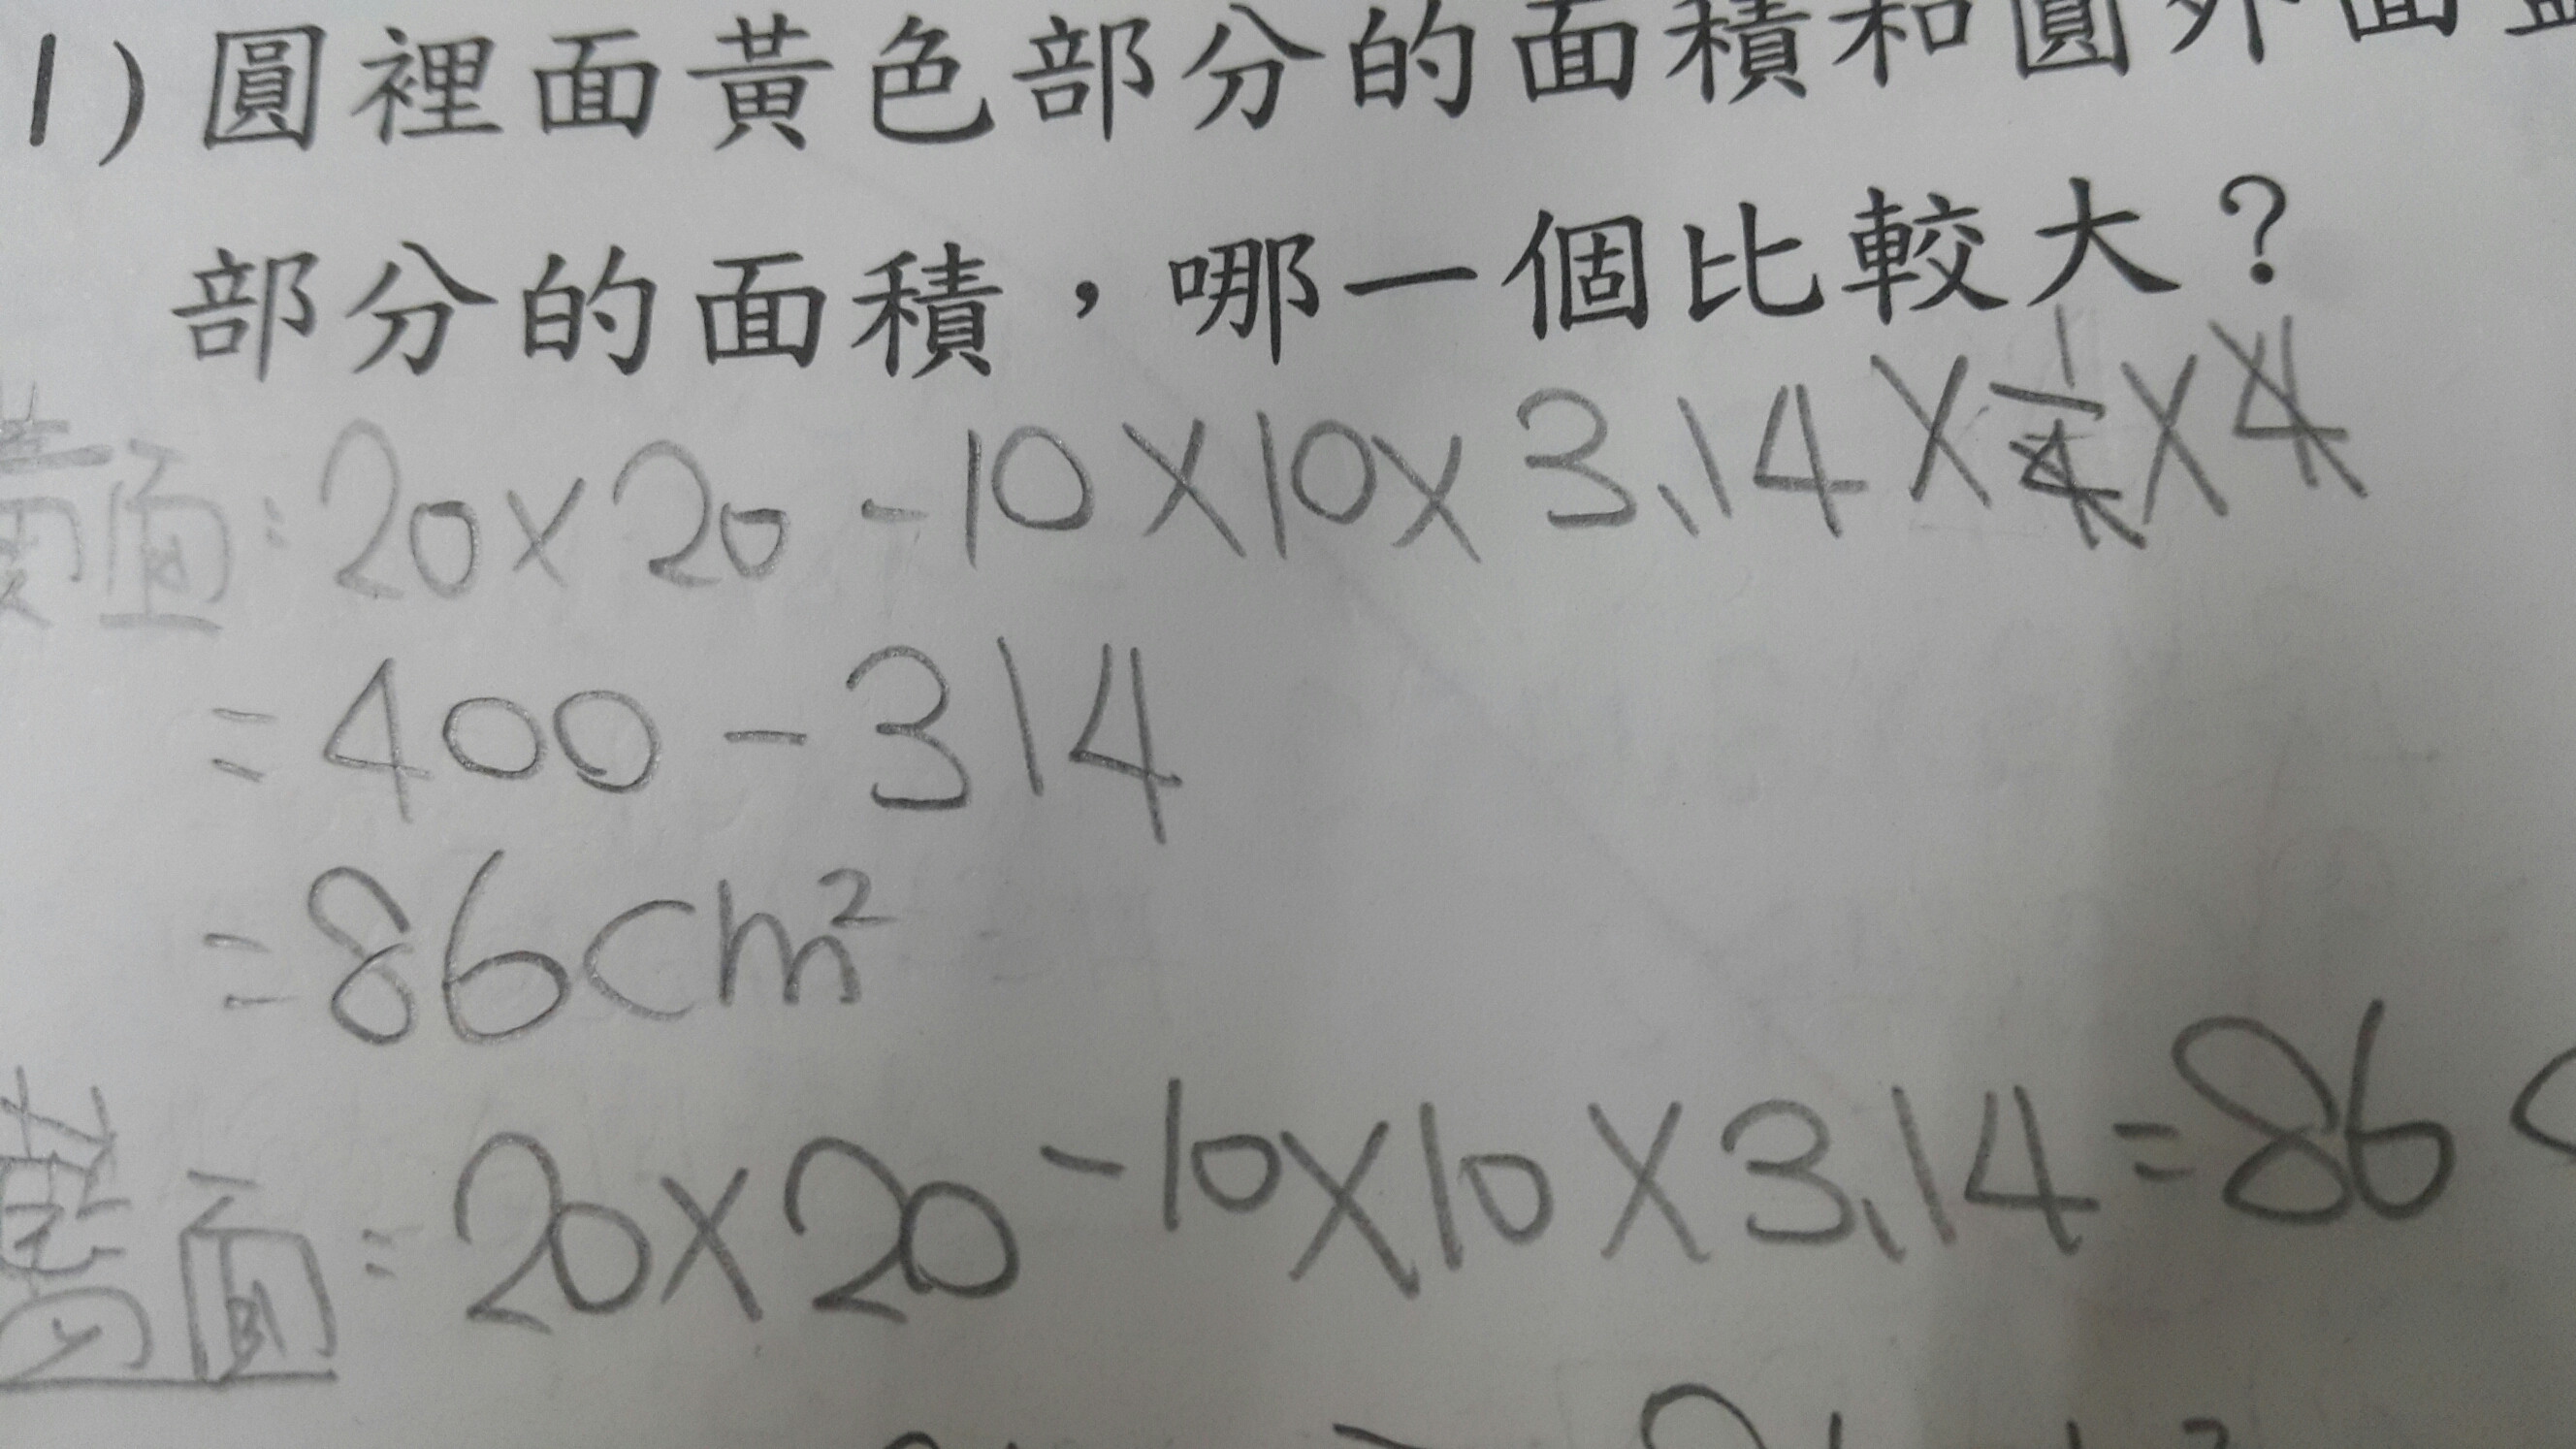 1)圓裡面黃色部分的面積和圓外面
部分的面積，哪一個比較大？
黃面:20×20-10×10×3.14×1/4×4
=400-314
=86cm²
面:20×20-10×10×3.14=86